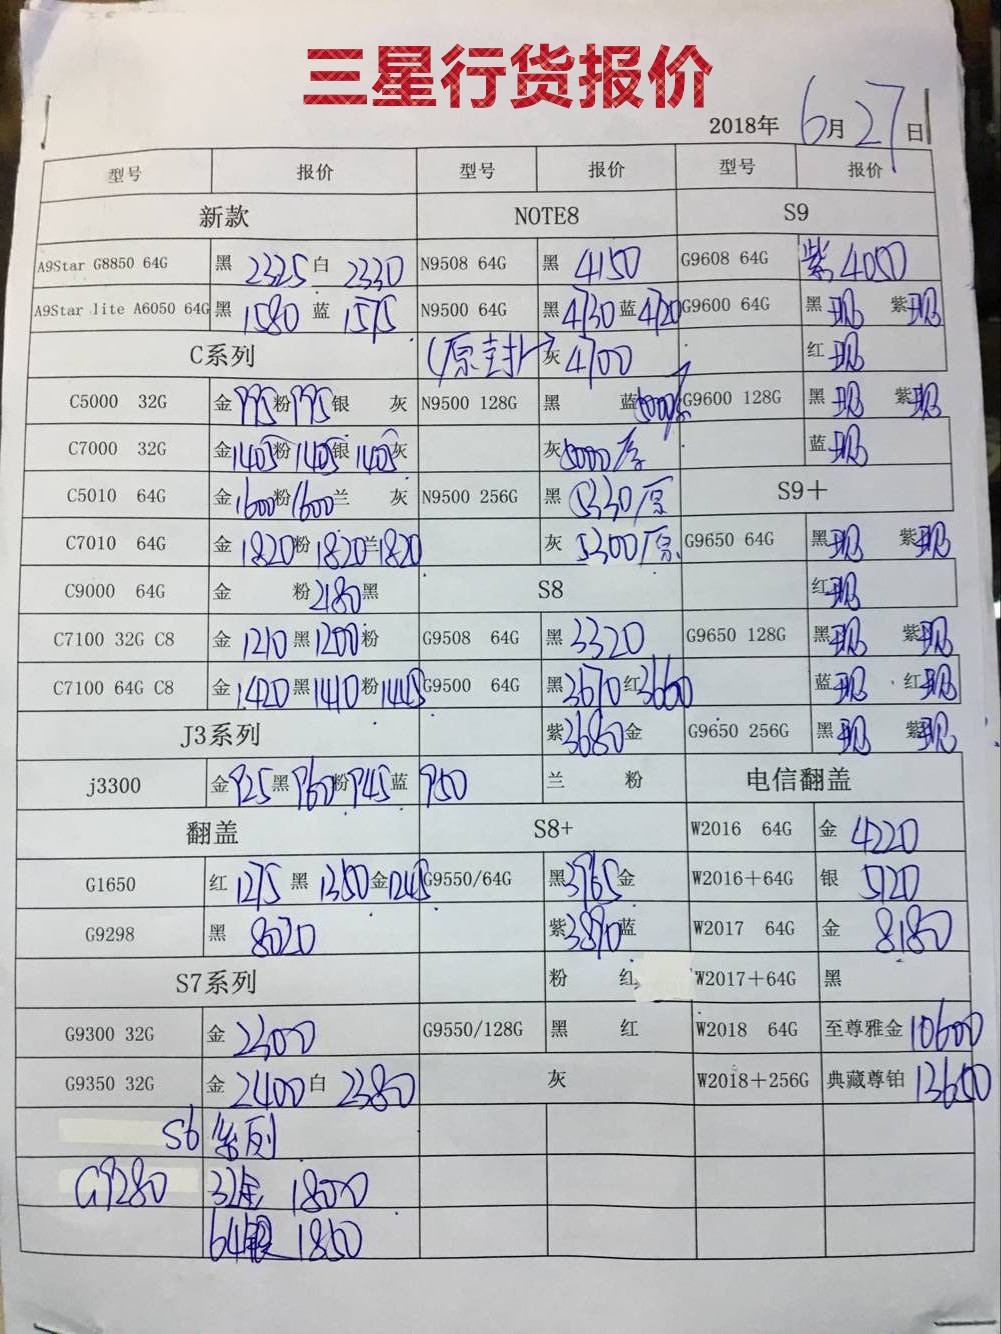 三星行货报价
2018年 6月27日
型号 报价 型号 报价 型号 报价
新款 NOTE8 S9
A9Star G8850 64G 黑 2325 白 2330 N9508 64G 黑 4150 G9608 64G 紫 4050
A9Star lite A6050 64G 黑 1580 蓝 1575 N9500 64G 黑 4730 蓝 4720 G9600 64G 黑 现 紫 现
C系列 (原封) 灰 4700 红 现
C5000 32G 金 995 粉 995 银 灰 N9500 128G 黑 蓝 G9600 128G 黑 现 紫 现
C7000 32G 金 1405 粉 1405 银 1405 灰 灰 5000/原 蓝 现
C5010 64G 金 1600 粉 1600 兰 灰 N9500 256G 黑 5330/原 S9+
C7010 64G 金 1820 粉 1820 兰 1820 灰 5300/原 G9650 64G 黑 现 紫 现
C9000 64G 金 粉 2180 黑 S8 红 现
C7100 32G C8 金 1210 黑 1200 粉 G9508 64G 黑 3320 G9650 128G 黑 现 紫 现
C7100 64G C8 金 1420 黑 1410 粉 1445 G9500 64G 黑 3670 红 3660 蓝 现 红 现
J3系列 紫 3680 金 G9650 256G 黑 现 紫 现
j3300 金 925 黑 960 粉 945 蓝 950 兰 粉 电信翻盖
翻盖 S8+ W2016 64G 金 4220
G1650 红 1275 黑 1350 金 1245 G9550/64G 黑 3965 金 W2016+64G 银 5120
G9298 黑 8020 紫 3890 蓝 W2017 64G 金 8180
S7系列 粉 红 W2017+64G 黑
G9300 32G 金 2300 G9550/128G 黑 红 W2018 64G 至尊雅金 10600
G9350 32G 金 2400 白 2380 灰 W2018+256G 典藏尊铂 13650
S6 系列
G9280 32金 1800
64银 1850